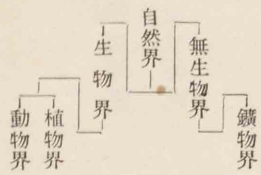 自然界
無生物界
鑛物界
生物界
植物界
動物界